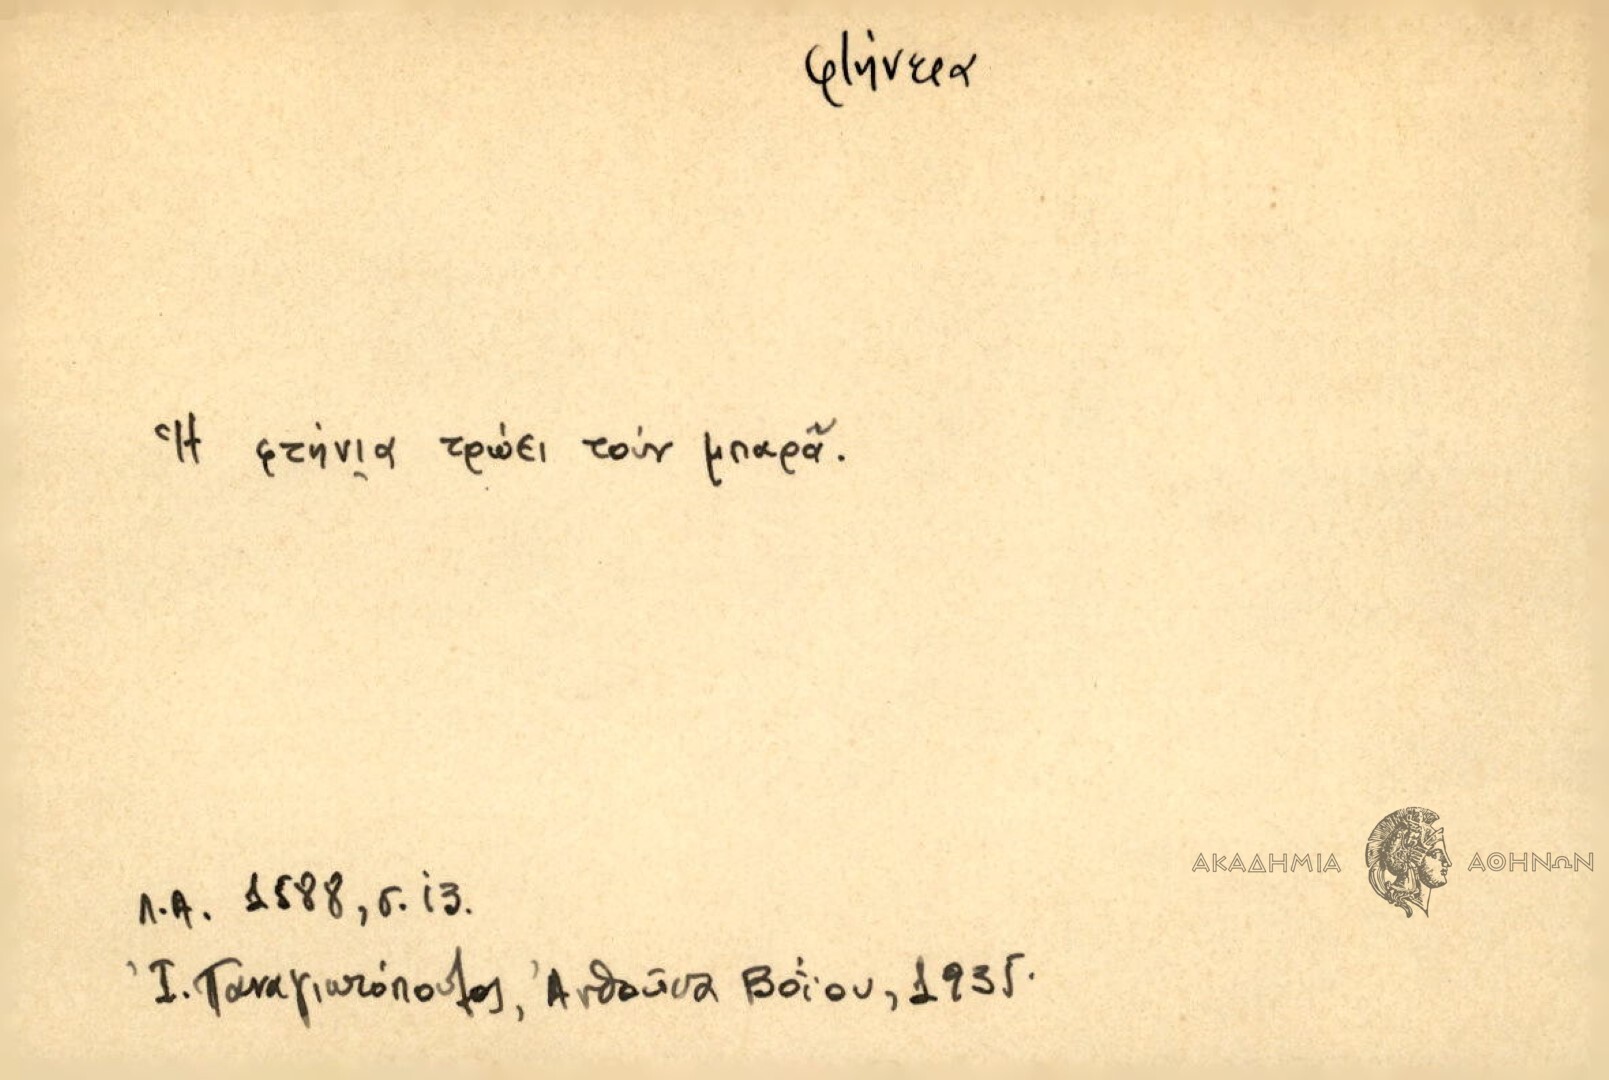 φτήνεια
Ἡ φτήνι̮α τρώει τούν μπαρᾶ.
Λ.Α. 1588, σ. 13.
Ἰ. Παναγιωτόπουλος, Ἀνθοῦσα Βοΐου, 1935.
ΑΚΑΔΗΜΙΑ ΑΘΗΝΩΝ